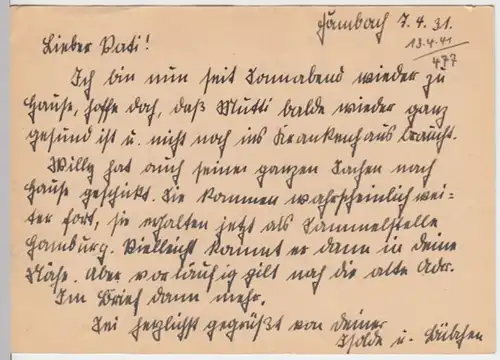 Hambach 7.4.31.
13.4.41
477
Lieber Vati!
Ich bin nun seit Sonnabend wieder zu
Hause, hoffe doch, daß Mutti balde wieder ganz
gesund ist u. nicht noch ins Krankenhaus braucht.
Willy hat auch seine ganzen Sachen nach
Hause geschickt. Sie kommen wahrscheinlich wei-
ter fort, sie erhalten jetzt als Sammelstelle
Hamburg. Vielleicht kommt er dann in deine
Nähe. Aber vorläufig gilt noch die alte Adr.
Im Brief dann mehr.
Sei herzlichst gegrüßt von deiner
Isolde u. Bübchen